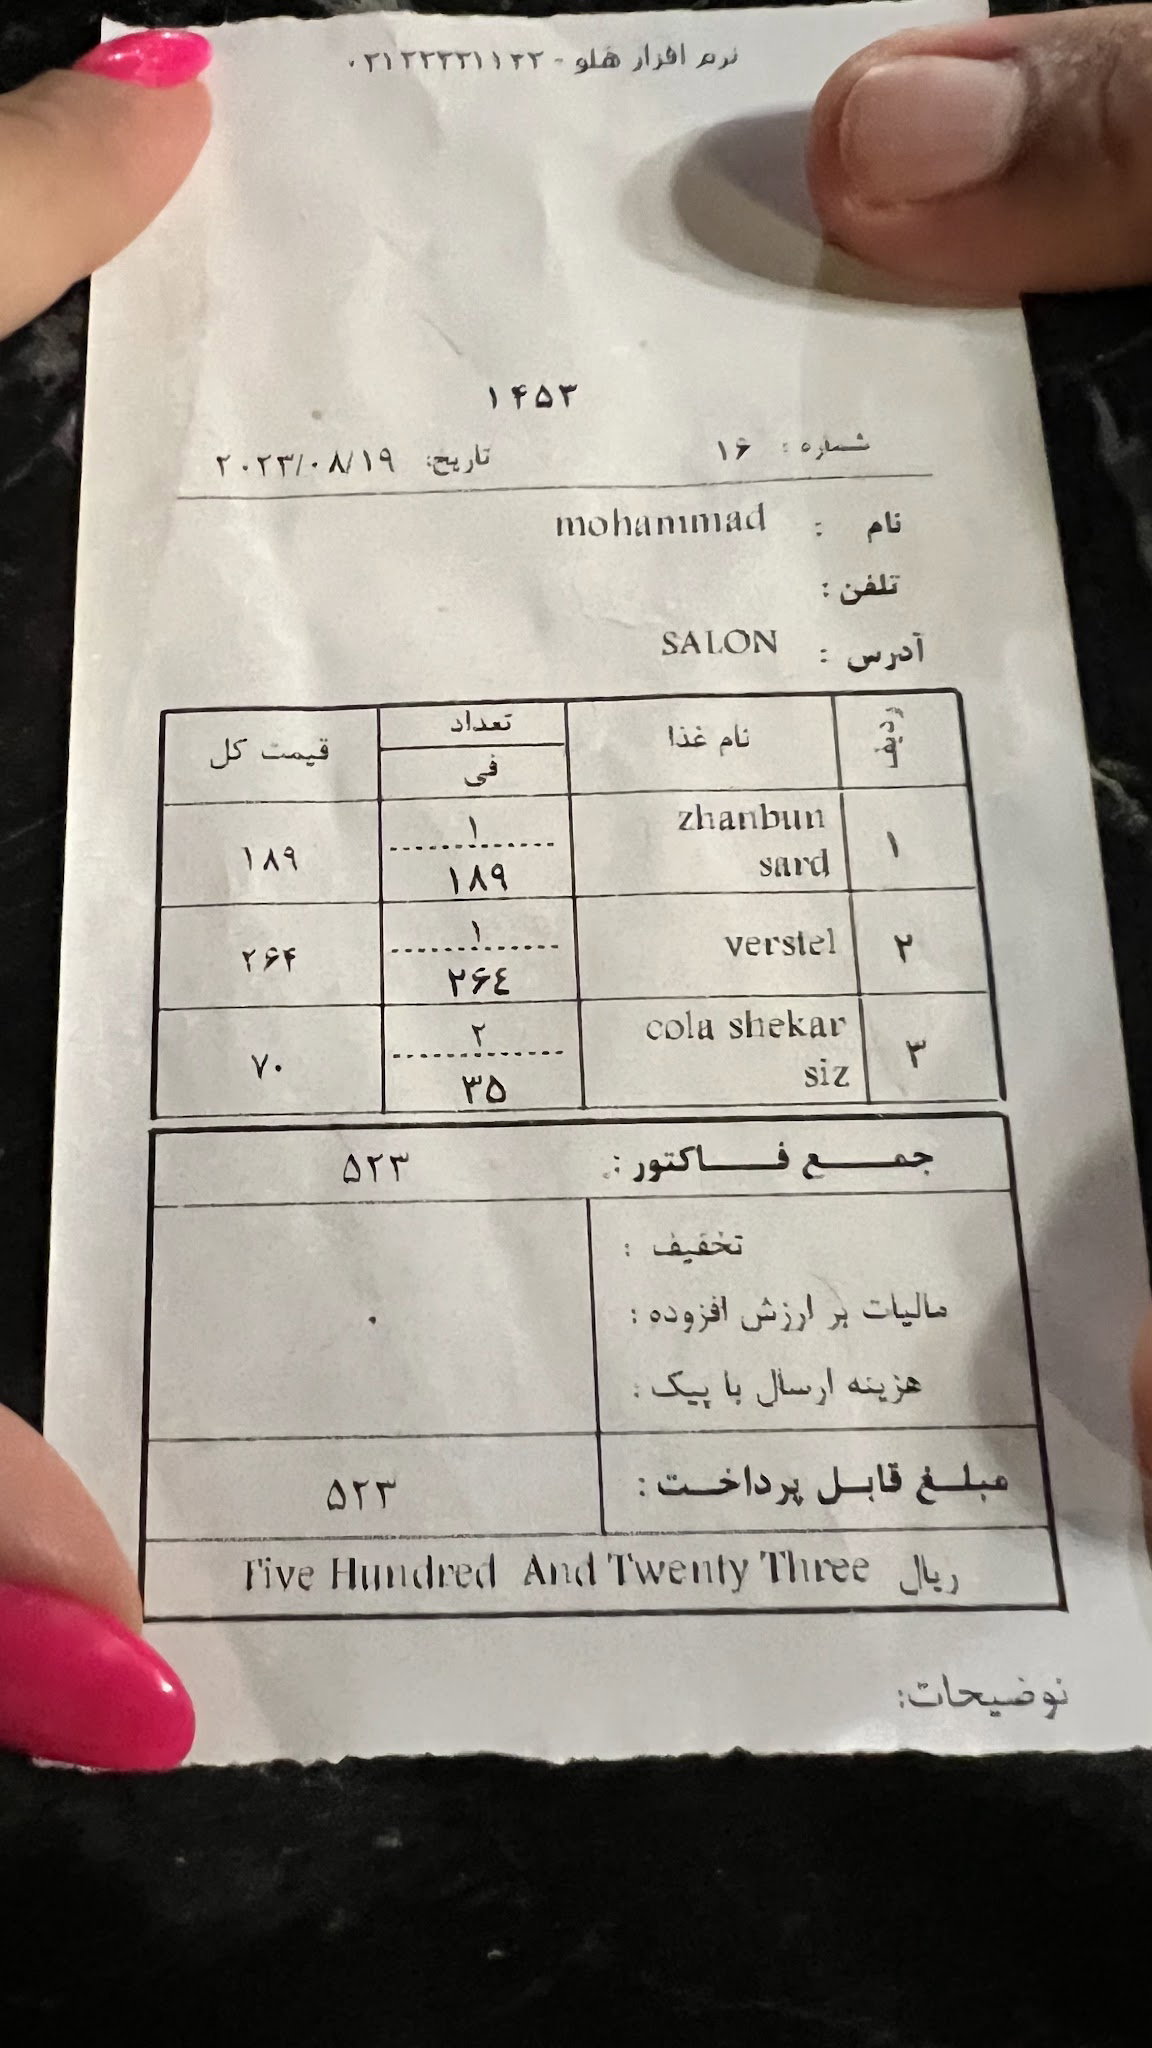 نرم افزار هلو - ۰۲۱۲۲۲۲۱۱۲۲
۱۴۵۳
شماره : ۱۶ تاریخ: ۲۰۲۳/۰۸/۱۹
نام : mohammad
تلفن :
آدرس : SALON
ردیف نام غذا تعداد فی قیمت کل
۱ zhanbun sard ۱ ۱۸۹ ۱۸۹
۲ verstel ۱ ۲۶۴ ۲۶۴
۳ cola shekar siz ۲ ۳۵ ۷۰
جمع فاکتور : ۵۲۳
تخفیف :
مالیات بر ارزش افزوده : ۰
هزینه ارسال با پیک :
مبلغ قابل پرداخت : ۵۲۳
Five Hundred And Twenty Three ریال
توضیحات: